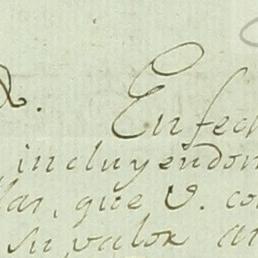 En fech
incluyendom
lar, que V. co
su valor an